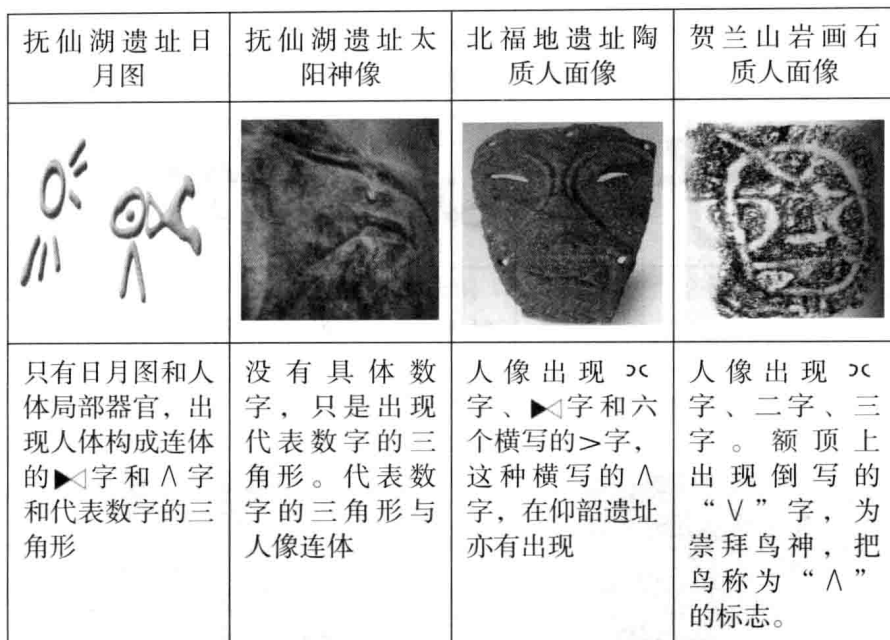 抚仙湖遗址日
月图
抚仙湖遗址太
阳神像
北福地遗址陶
质人面像
贺兰山岩画石
质人面像
只有日月图和人
体局部器官，出
现人体构成连体
的▶◁字和∧字
和代表数字的三
角形
没有具体数
字，只是出现
代表数字的三
角形。代表数
字的三角形与
人像连体
人像出现ɔc
字、▶◁字和六
个横写的>字，
这种横写的∧
字，在仰韶遗址
亦有出现
人像出现ɔc
字、二字、三
字。额顶上
出现倒写的
“∨”字，为
崇拜鸟神，把
鸟称为“∧”
的标志。